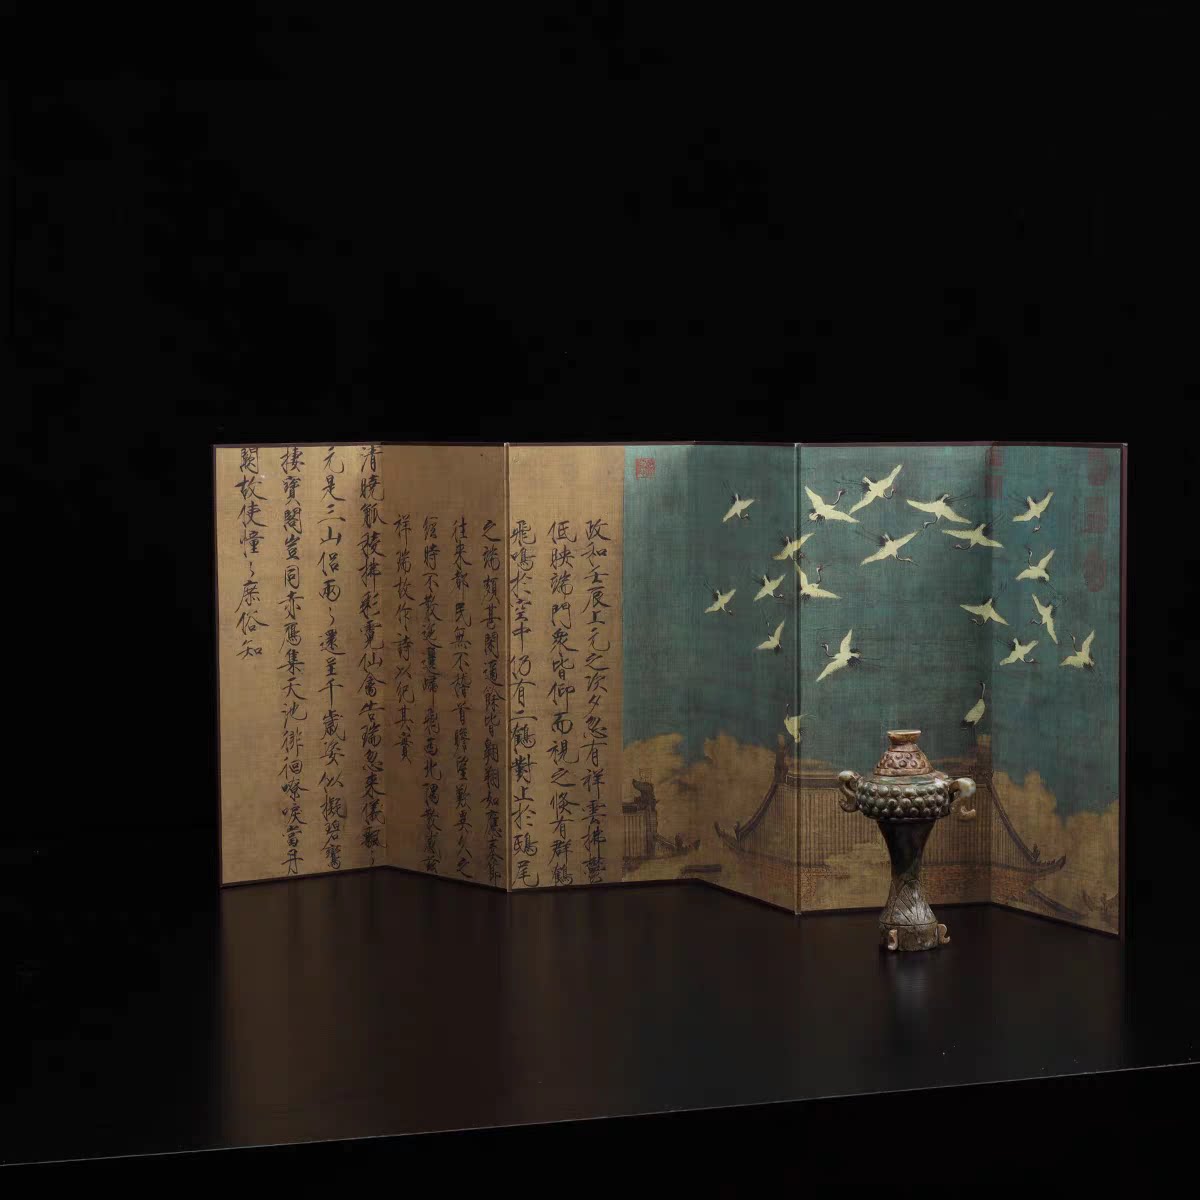 政和壬辰上元之次夕忽有祥雲拂鬱
低映端門眾皆仰而視之倏有群鶴
飛鳴於空中仍有二鶴對止於鴟尾
之端頗甚閑適餘皆翱翔如應奏節
往來都民無不稽首瞻望歎異久之
經時不散迤邐歸飛西北隅散感茲
祥瑞故作詩以紀其實
清曉觚稜拂彩霓仙禽告瑞忽來儀飄〻
元是三山侶兩〻還呈千歲姿似擬碧鸞
棲寶閣豈同赤鴈集天池徘徊嘹唳當丹
闕故使憧〻庶俗知